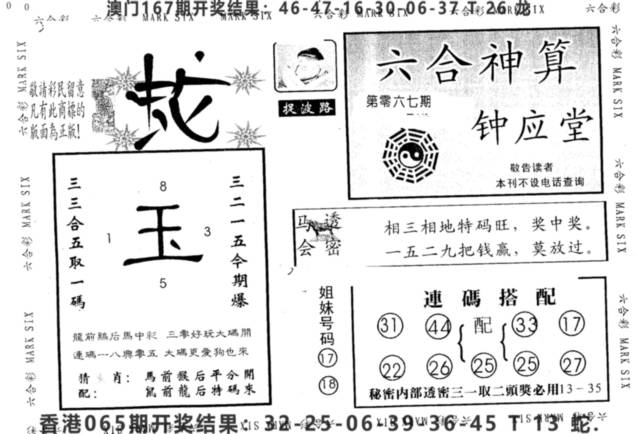 澳门167期开奖结果：46-47-16-30-06-37 T 26 龙
六合彩 MARK SIX
敬請彩民留意
凡有此商標的
版面為正版!
捉波路
六合神算
第零六七期
钟应堂
敬告读者
本刊不设电话查询
三三合五取一碼
8
1 玉 3
5
三二一五今期爆
龍前鷄后馬中彩 三零好玩大碼開
連碼一八與零五 大碼更愛狗也來
猜 肖：馬前猴后平分開
配：鼠前龍后特碼來
马会
透密
相三相地特码旺，奖中奖。
一五二九把钱赢，莫放过。
姐妹号码
17
18
連碼搭配
31 44 配 33 17
22 26 25 25 27
秘密内部透密三一取二頭奬必用13-35
香港065期开奖结果：32-25-06-39-36-45 T 13 蛇.